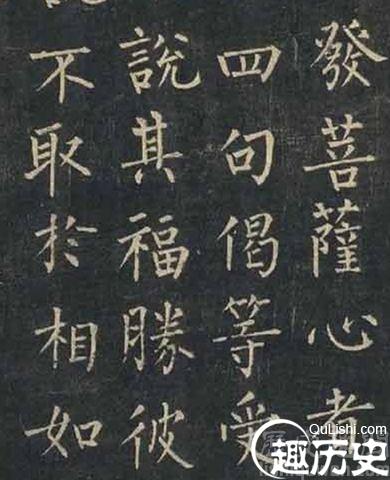 發菩薩心者
四句偈等受
說其福勝彼
不取於相如
QuLishi.com
趣历史